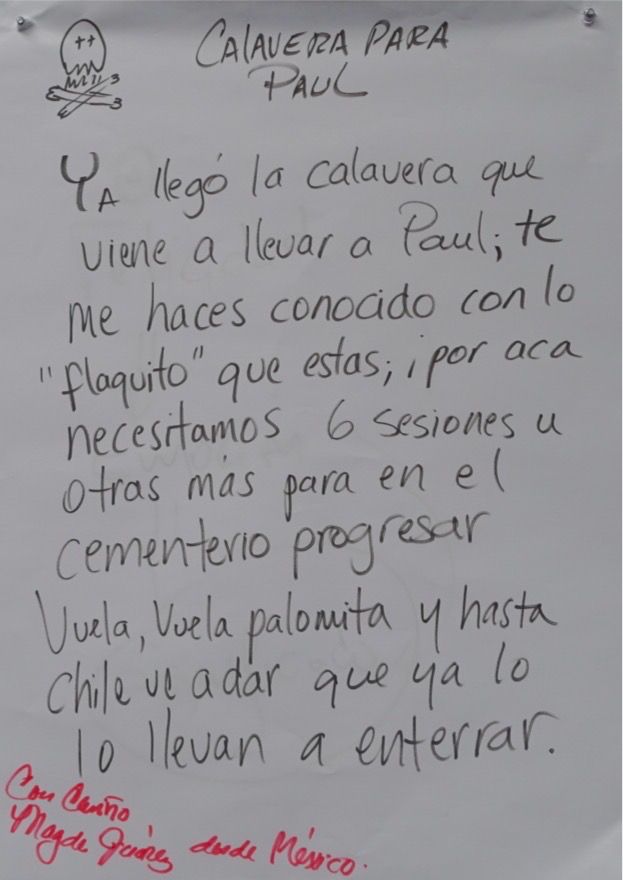 CALAVERA PARA
PAUL
YA llegó la calavera que
viene a llevar a Paul; te
me haces conocido con lo
"flaquito" que estas; ¡por aca
necesitamos 6 sesiones u
otras más para en el
cementerio progresar
Vuela, Vuela palomita y hasta
Chile ve a dar que ya lo
lo llevan a enterrar.
Con Cariño
Magda desde México.